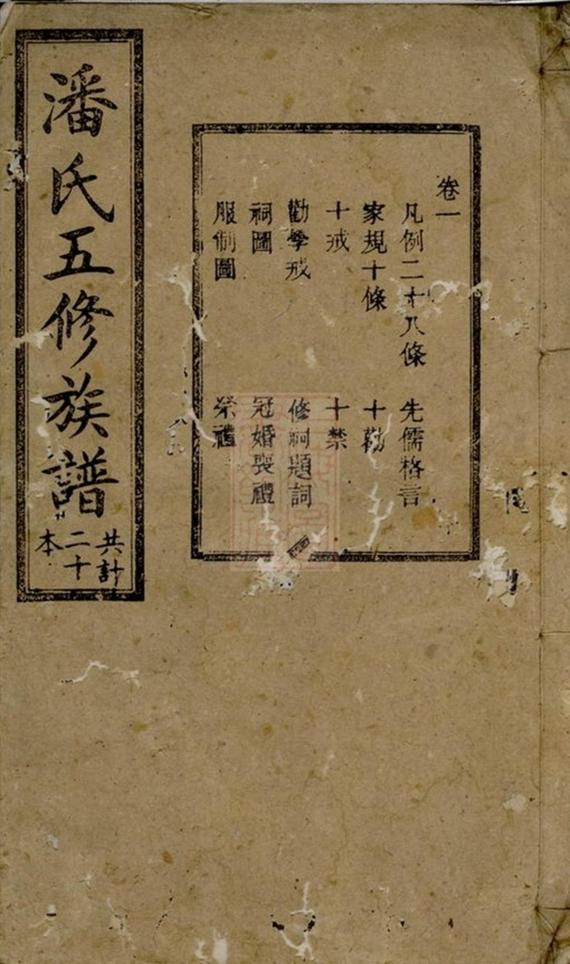 潘氏五修族譜
共計
二十
本
卷一
凡例二十八條 先儒格言
家規十條 十勸
十戒 十禁
勸學戒 修祠題詞
祠圖 冠婚喪禮
服制圖 祭禮